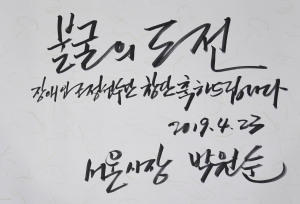 불굴의 도전
장애인 조정선수단 창단 축하드립니다
2019.4.23
서울시장 박원순